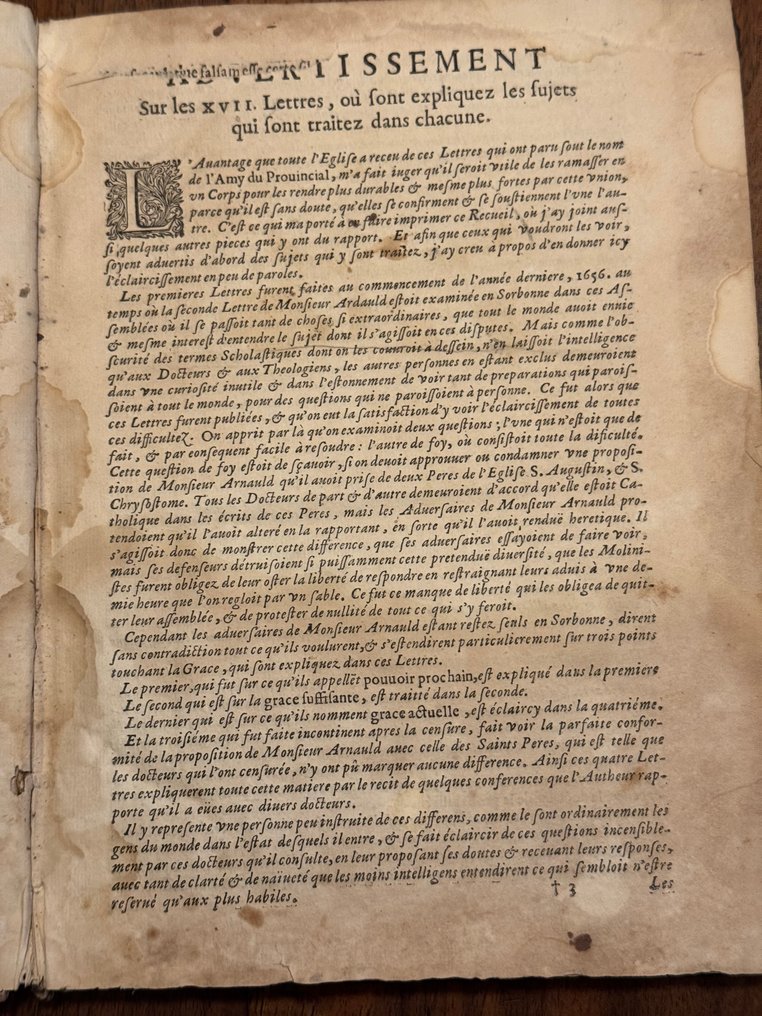 ADVERTISSEMENT
Sur les XVII. Lettres, où ſont expliquez les ſujets
qui ſont traitez dans chacune.
L'Auantage que toute l'Egliſe a receu de ces Lettres qui ont paru ſout le nom
de l'Amy du Prouincial, m'a fait iuger qu'il ſeroit vtile de les ramaſſer en
vn Corps pour les rendre plus durables & meſme plus fortes par cette vnion,
parce qu'il eſt ſans doute, qu'elles ſe confirment & ſe souſtiennent l'vne l'au-
tre. C'eſt ce qui ma porté à en faire imprimer ce Recueil, où j'ay joint auſ-
ſi quelques autres pieces qui y ont du rapport. Et afin que ceux qui voudront les voir,
ſoyent advertis d'abord des ſujets qui y ſont traitez, j'ay creu à propos d'en donner icy
l'éclairciſſement en peu de paroles.
Les premieres Lettres furent faites au commencement de l'année derniere, 1656. au
temps où la ſeconde Lettre de Monſieur Ardauld eſtoit examinée en Sorbonne dans ces Aſ-
ſemblées où il ſe paſſoit tant de choſes ſi extraordinaires, que tout le monde auoit enuie
& meſme intereſt d'entendre le ſujet dont il s'agiſſoit en ces diſputes. Mais comme l'ob-
ſcurité des termes Scholaſtiques dont on les couuroit à deſſein, n'en laiſſoit l'intelligence
qu'aux Docteurs & aux Theologiens, les autres perſonnes en eſtant exclus demeuroient
dans vne curioſité inutile & dans l'eſtonnement de voir tant de preparations qui paroiſ-
ſoient à tout le monde, pour des queſtions qui ne paroiſſoient à perſonne. Ce fut alors que
ces Lettres furent publiées, & qu'on eut la ſatisfaction d'y voir l'éclairciſſement de toutes
ces difficultez. On apprit par là qu'on examinoit deux queſtions; l'vne qui n'eſtoit que de
fait, & par conſequent facile à reſoudre: l'autre de foy, où conſiſtoit toute la dificulté.
Cette queſtion de foy eſtoit de ſçauoir, ſi on deuoit approuuer ou condamner vne propoſi-
tion de Monſieur Arnauld qu'il auoit priſe de deux Peres de l'Egliſe S. Auguſtin, & S.
Chryſoſtome. Tous les Docteurs de part & d'autre demeuroient d'accord qu'elle eſtoit Ca-
tholique dans les écrits de ces Peres, mais les Aduerſaires de Monſieur Arnauld pro-
tendoient qu'il l'auoit alteré en la rapportant, en ſorte qu'il l'auoit renduë heretique. Il
s'agiſſoit donc de monſtrer cette difference, que ſes aduerſaires eſſayoient de faire voir,
mais ſes defenſeurs détruiſoient ſi puiſſamment cette pretenduë diuerſité, que les Molini-
ſtes furent obligez de leur oſter la liberté de reſpondre en reſtraignant leurs aduis à vne de-
mie heure que l'on regloit par vn ſable. Ce fut ce manque de liberté qui les obligea de quit-
ter leur aſſemblée, & de proteſter de nullité de tout ce qui s'y feroit.
Cependant les aduerſaires de Monſieur Arnauld eſtant reſtez ſeuls en Sorbonne, dirent
ſans contradiction tout ce qu'ils voulurent, & s'eſtendirent particulierement ſur trois points
touchant la Grace, qui ſont expliquez dans ces Lettres.
Le premier, qui fut ſur ce qu'ils appellẽt pouuoir prochain, eſt expliqué dans la premiere
Le ſecond qui eſt ſur la grace ſuffiſante, eſt traitté dans la ſeconde.
Le dernier qui eſt ſur ce qu'ils nomment grace actuelle, eſt éclaircy dans la quatriéme.
Et la troiſiéme qui fut faite incontinent apres la cenſure, fait voir la parfaite confor-
mité de la propoſition de Monſieur Arnauld avec celle des Saints Peres, qui eſt telle que
les docteurs qui l'ont cenſurée, n'y ont pû marquer aucune difference. Ainſi ces quatre Let-
tres expliquerent toute cette matiere par le recit de quelques conferences que l'Autheur rap-
porte qu'il a eües auec diuers docteurs.
Il y repreſente vne perſonne peu inſtruite de ces differens, comme le ſont ordinairement les
gens du monde dans l'eſtat deſquels il entre, & ſe fait éclaircir de ces queſtions incenſible-
ment par ces docteurs qu'il conſulte, en leur propoſant ſes doutes & receuant leurs reſponſes,
auec tant de clarté & de naïueté que les moins intelligens entendirent ce qui ſembloit n'eſtre
reſerué qu'aux plus habiles.
† 3
Les